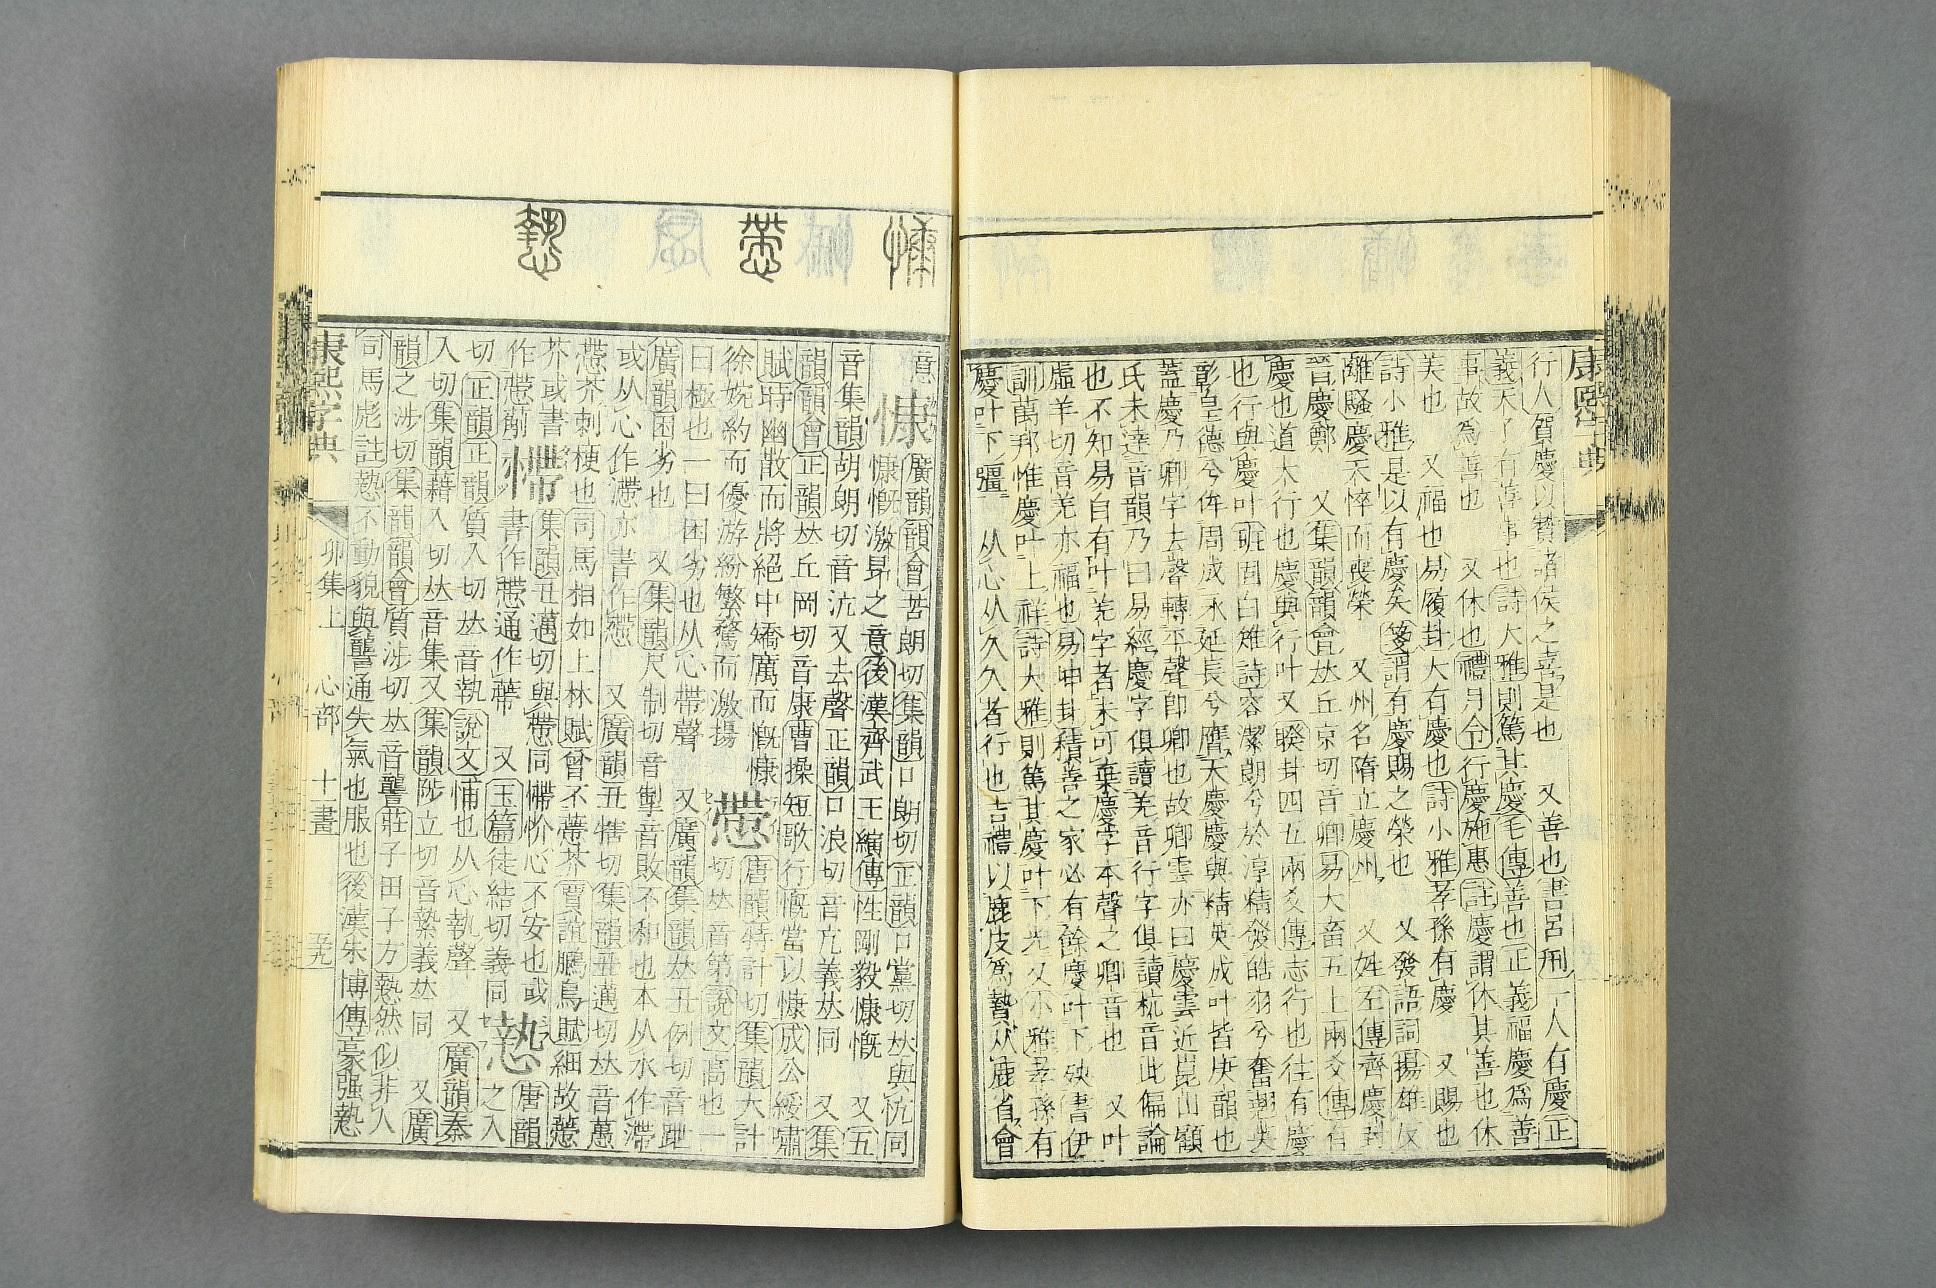 康熙字典
行人賀慶以贊諸侯之喜是也 又善也書呂𠛬一人有慶正
義天子有善事也詩大雅則篤其慶毛傳善也正義福慶為善
事故為善也 又休也禮月令行慶施惠註慶謂休其善也休
美也 又福也易履卦大有慶也詩小雅孝孫有慶 又賜也
詩小雅是以有慶矣箋謂有慶賜之榮也 又發語詞揚雄反
離騷慶夭悴而喪榮 又州名隋立慶州 又姓左傳齊慶封
晉慶鄭 又集韻韻會𠀤丘京切音卿易大畜五上兩爻傳有
慶也道大行也慶與行叶又睽卦四五兩爻傳志行也往有慶
也行與慶叶班固白雉詩容潔朗兮於淳精發皓羽兮奮翹英
彰皇德兮侔周成永延長兮膺天慶慶與精英成叶皆庚韻也
蓋慶乃卿字去聲轉平聲卽卿也故卿雲亦曰慶雲近崑山顧
氏未達音韻乃曰易經慶字俱讀羌音行字俱讀杭音此偏論
也不知易自有叶羌字者未可棄慶字本聲之卿音也 又叶
虛羊切音羌亦福也易坤卦積善之家必有餘慶叶下殃書伊
訓萬邦惟慶叶上祥詩大雅則篤其慶叶下光又小雅孝孫有
慶叶下疆 从心从夂夂者行也吉禮以鹿皮為贄从鹿省會
意 慷 廣韻韻會苦朗切集韻口朗切正韻口黨切𠀤與忼同
慷慨激昻之意後漢齊武王縯傳性剛毅慷慨 又五
音集韻胡朗切音沆又去聲正韻口浪切音亢義𠀤同 又集
韻韻會正韻𠀤丘岡切音康曹操短歌行慨當以慷成公綏嘯
賦時幽散而將絕中矯厲而慨慷
徐婉約而優游紛繁騖而激揚 慸 唐韻特計切集韻大計
切𠀤音第說文高也一
曰極也一曰困劣也从心帶聲 又廣韻集韻𠀤丑例切音跇
廣韻困劣也 又集韻尺制切音掣音敗不和也本从水作滯
或从心作𢠫亦書作慸 又廣韻丑犗切集韻丑邁切𠀤音蠆
慸芥刺梗也司馬相如上林賦曾不慸芥賈誼鵩鳥賦細故慸
芥或書
作慸葪 㦅 集韻丑邁切與慸同㦅忦心不安也或
書作慸通作蔕 又玉篇徒結切義同 慹 唐韻
之入
切正韻正韻質入切𠀤音執說文㤵也从心執聲 又廣韻秦
入切集韻藉入切𠀤音集又集韻陟立切音縶義𠀤同 又廣
韻之涉切集韻韻會質涉切𠀤音讋莊子田子方慹然似非人
司馬彪註慹不動貌與讋通失氣也服也後漢朱博傳豪强慹
康熙字典 卯集上 心部 十畫